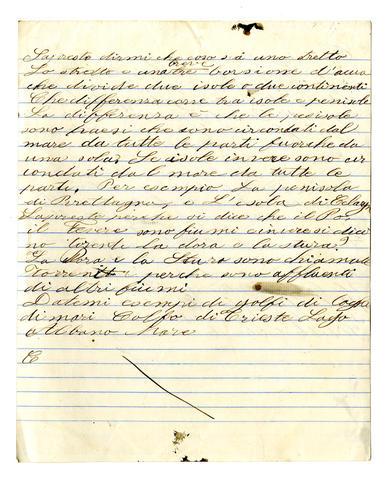 Sapreste dirmi che cosa sia uno stretto
Lo stretto e una breve porsione d'aqua
che divide due isole o due continenti
Che differenza corre tra isole e penisole
La differenza è che le penisole
sono paesi che sono circondati dal
mare da tutte le parti fuorche da
una sola. Le isole invece sono cir
condati dal mare da tutte le
parti. Per esempio La penisola
di Brettagna, e L'isola di
perche si dice che il Po
il Tevere sono fiumi e invece si dica
no torente la dora e la stura?
La Dora e la Stura sono chiamate
Torrenti perche sono affluenti
di altri fiumi
Datemi esempi di golfi di
di mari Golfo di Trieste Lago
Albano Mare
C